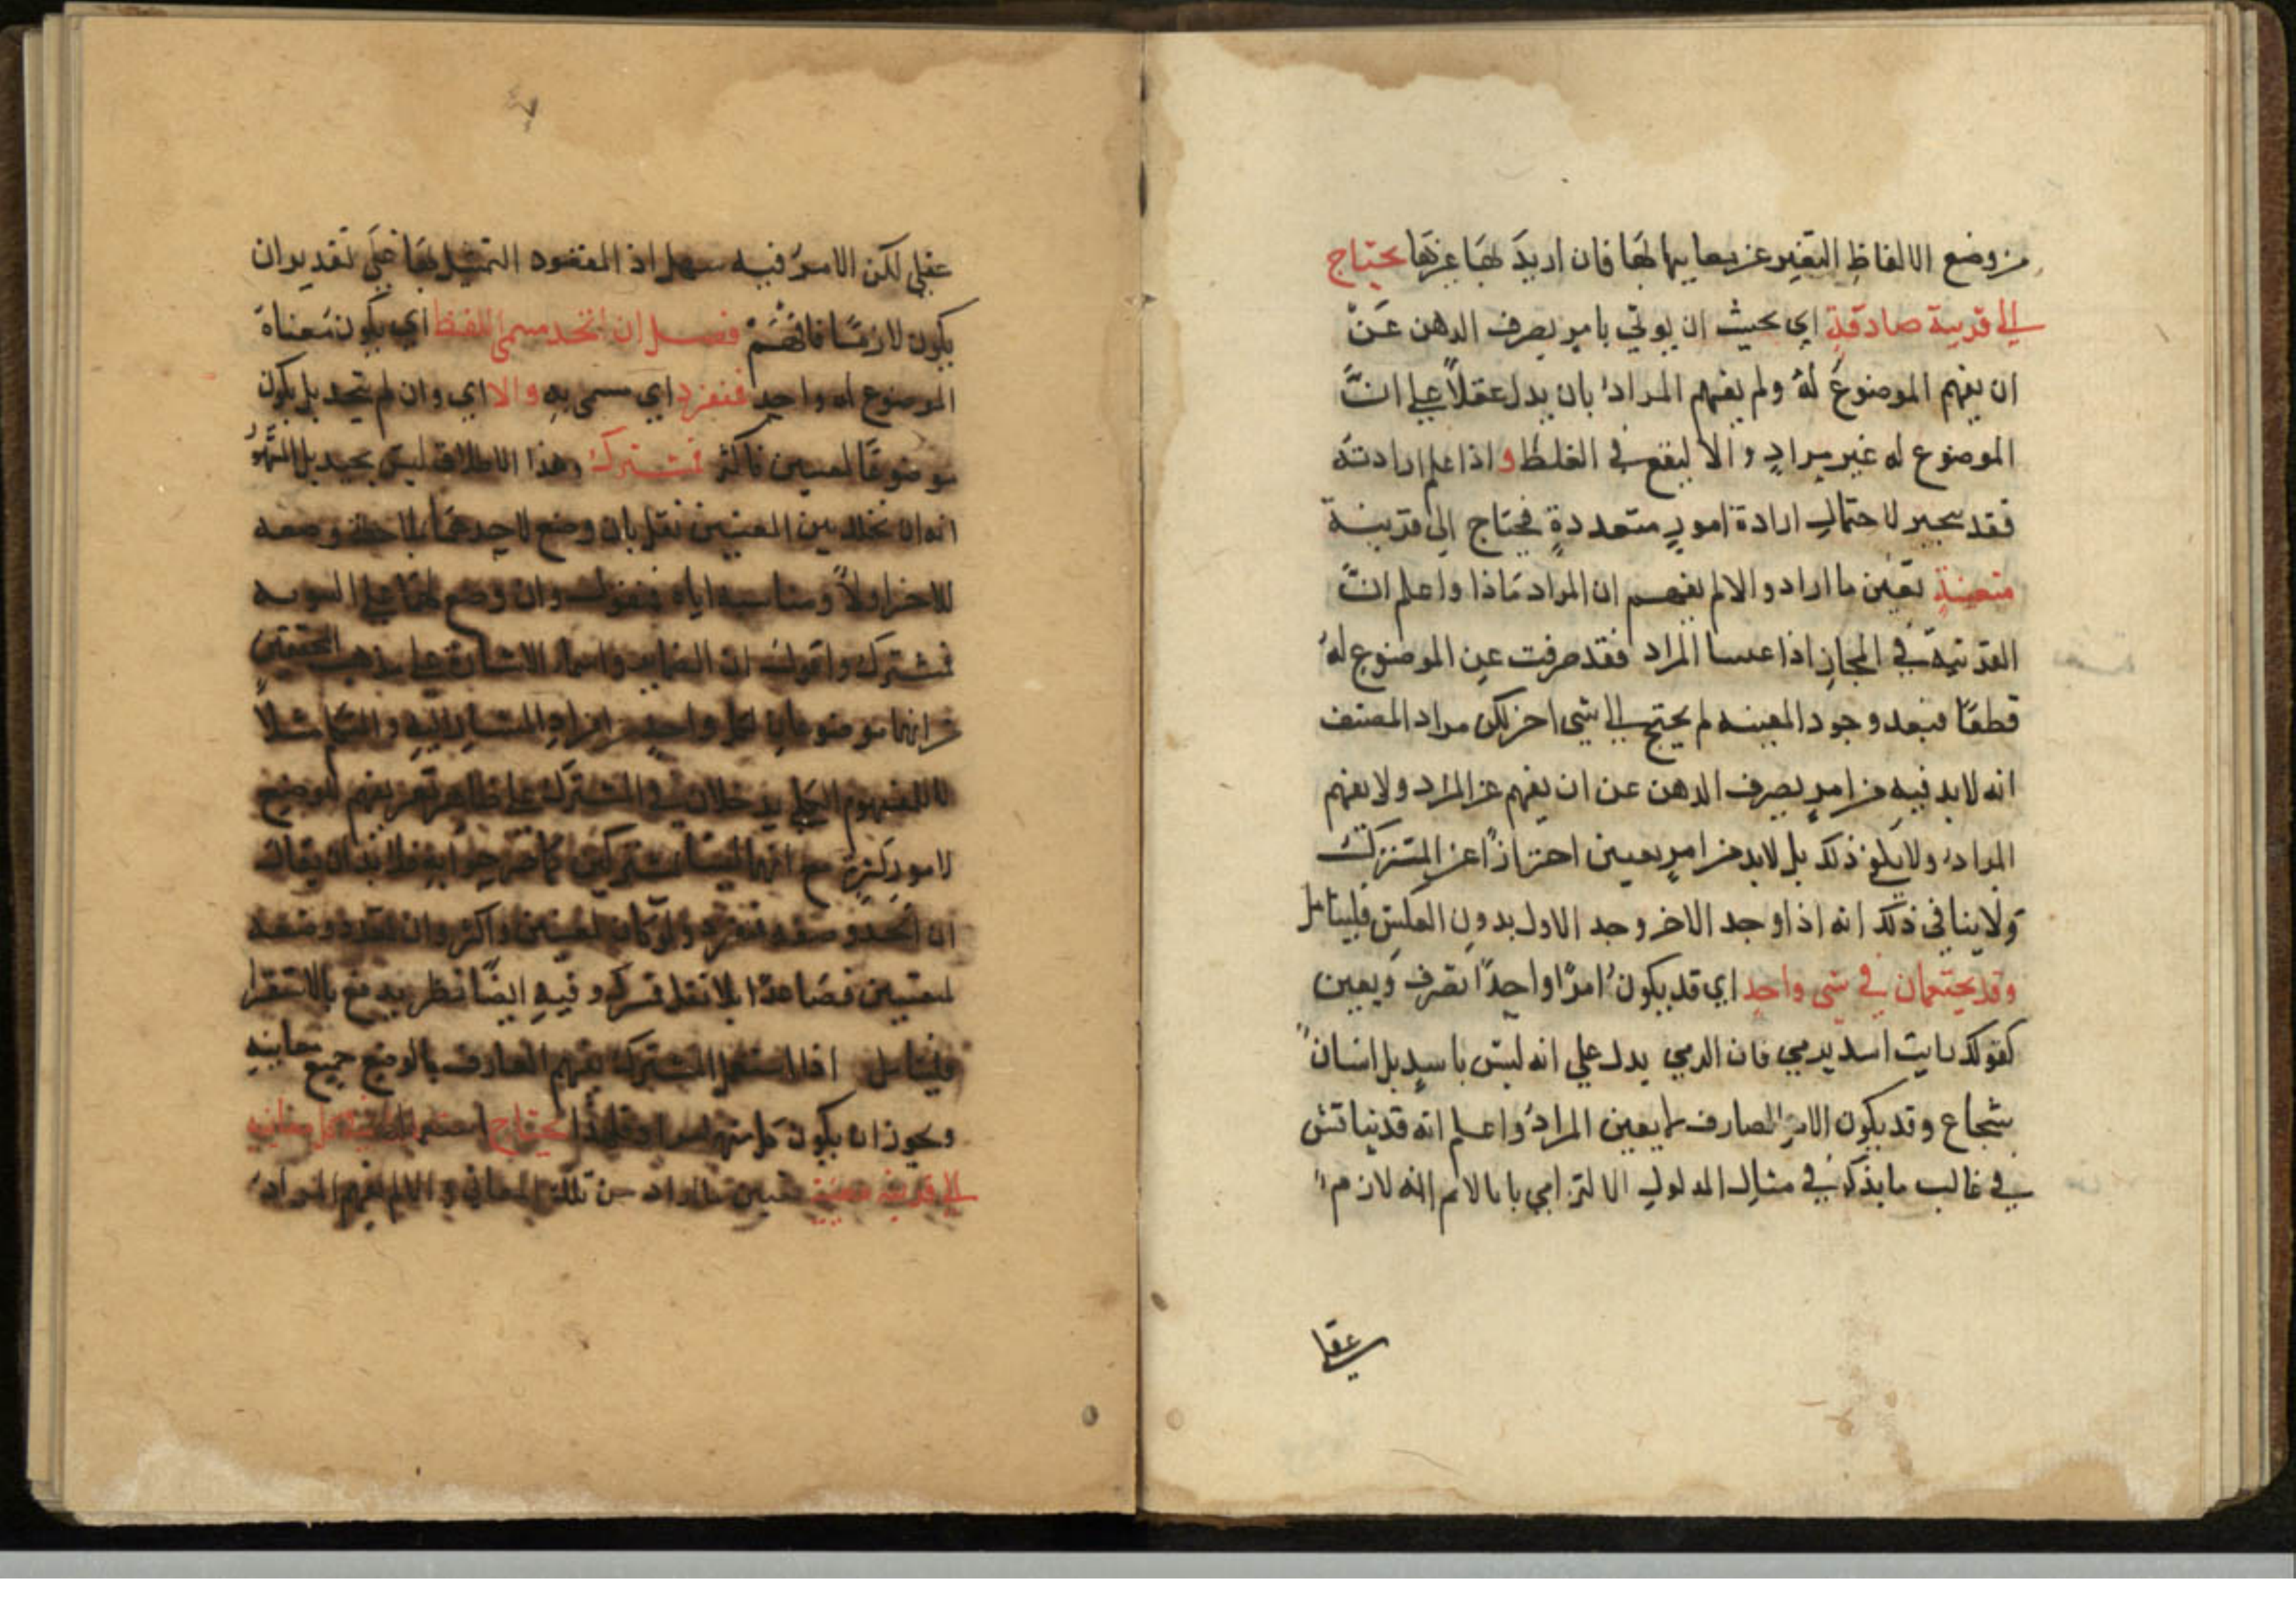 من وضع الالفاظ التعبير عن معاييها لها فان اريد لها غيرها يحتاج
الى قرينة صادقة اي بحيث ان يوتي بامر يصرف الدهن عن
ان يفهم الموضوع له ولم يفهم المراد بان يدل عقلا علي ان
الموضوع له غير مراد والا ليقع في الغلط و اذا علم ارادته
فقد يتحير لاحتمال ارادة امور متعددة فيحتاج الي قرينة
معينة تعين ما اراد والا لم يفهم ان المراد ماذا واعلم ان
القرينة في المجاز اذا المراد فقد صرفت عن الموضوع له
قطعا فبعد وجود المعينه لم يحتج الى شي اخر لكن مراد المصنف
انه لابد فيه من امر يصرف الدهن عن ان يفهم غير المراد ولا يفهم
المراد ولا يكفي ذلك بل لابد من امر يعين احترازا عن المشترك
ولا ينافي ذلك انه اذا وجد الاخر وجد الاول بدون العكس فليتامل
وقد يجتمعان في شي واحد اي قد يكون امرا واحدا تصرف ويعين
كقولك رايت اسد يرمي فان الرمي يدل علي انه ليس باسد بل انسان
شجاع وقد يكون الامر الصارف لم يعين المراد واعلم انه قد يناقش
في غالب ما يذكر في مثال المدلول الالتزامي بانه لا لازم
عقلي
عقلي لكن الامر فيه سهل اذ المقصود التمثيل بها علي تقدير ان
يكون لازما فافهم فصل ان اتحد مسمي اللفظ اي يكون معناه
الموضوع له واحد فمنفرد اي مسمي به والا اي وان لم يتحد بل يكون
موضوعا لمعنيين فاكثر فمشترك وهذا الاطلاق ليس بجيد بل المشهور
انه ان تخلل بين المعنيين نقل بان وضع لاحدهما بملاحظة وضعه
للاخر اولا ومناسبه اياه فمنقول وان وضع لهما علي السويه
فمشترك واقول ان الضماير واسماء الاشارة علي مذهب المحققين
من انها موضوعات لكل واحد من افراد المشار اليه والمتكلم مثلا
لا للمفهوم الكلي يدخلان في المشترك علي ظاهر تعريفهم الوضع
لامور كثيرة مع انهما ليسا مشتركين كما صرحوا به فلا بد ان يقال
ان اتحد وضعه فمنفرد ولو كان لمعنيين واكثر وان تعدد وضعه
لمعنيين فصاعدا بلا نقل فمشترك وفيه ايضا نظر يدفع بالاستقرا
فليتامل اذا استعمل المشترك يفهم العارف بالوضع جميع معانيه
ويجوز ان يكون كل منها مراد فلهذا يحتاج استعماله كل معانيه
الى قرينة معينة تعين المراد من تلك المعاني والا لم يفهم المراد